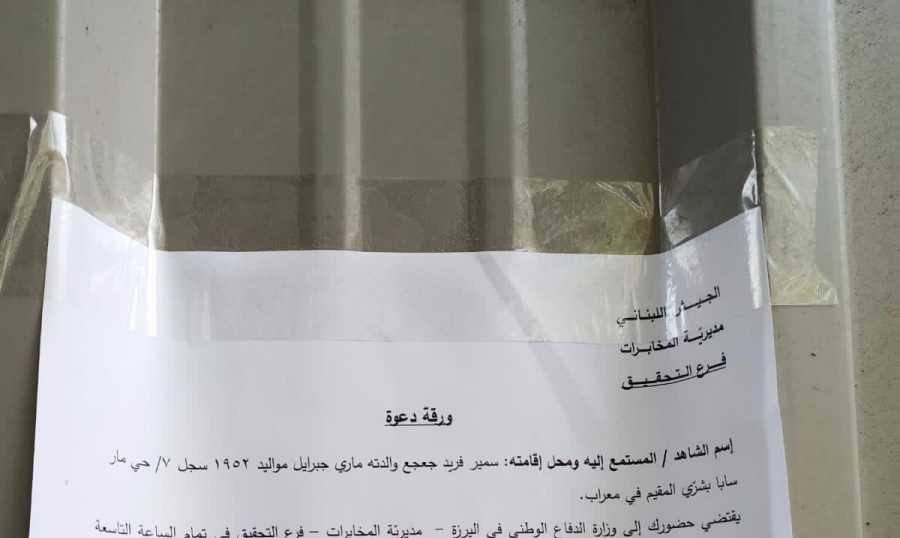 الجيش اللبناني
مديريّة المخابرات
فرع التحقيق
ورقة دعوة
إسم الشاهد / المستمع إليه ومحل إقامته: سمير فريد جعجع والدته ماري جبرايل مواليد ١٩٥٢ سجل ٧/ حي مار
سابا بشرّي المقيم في معراب.
يقتضي حضورك إلى وزارة الدفاع الوطني في اليرزة – مديريّة المخابرات – فرع التحقيق في تمام الساعة التاسعة